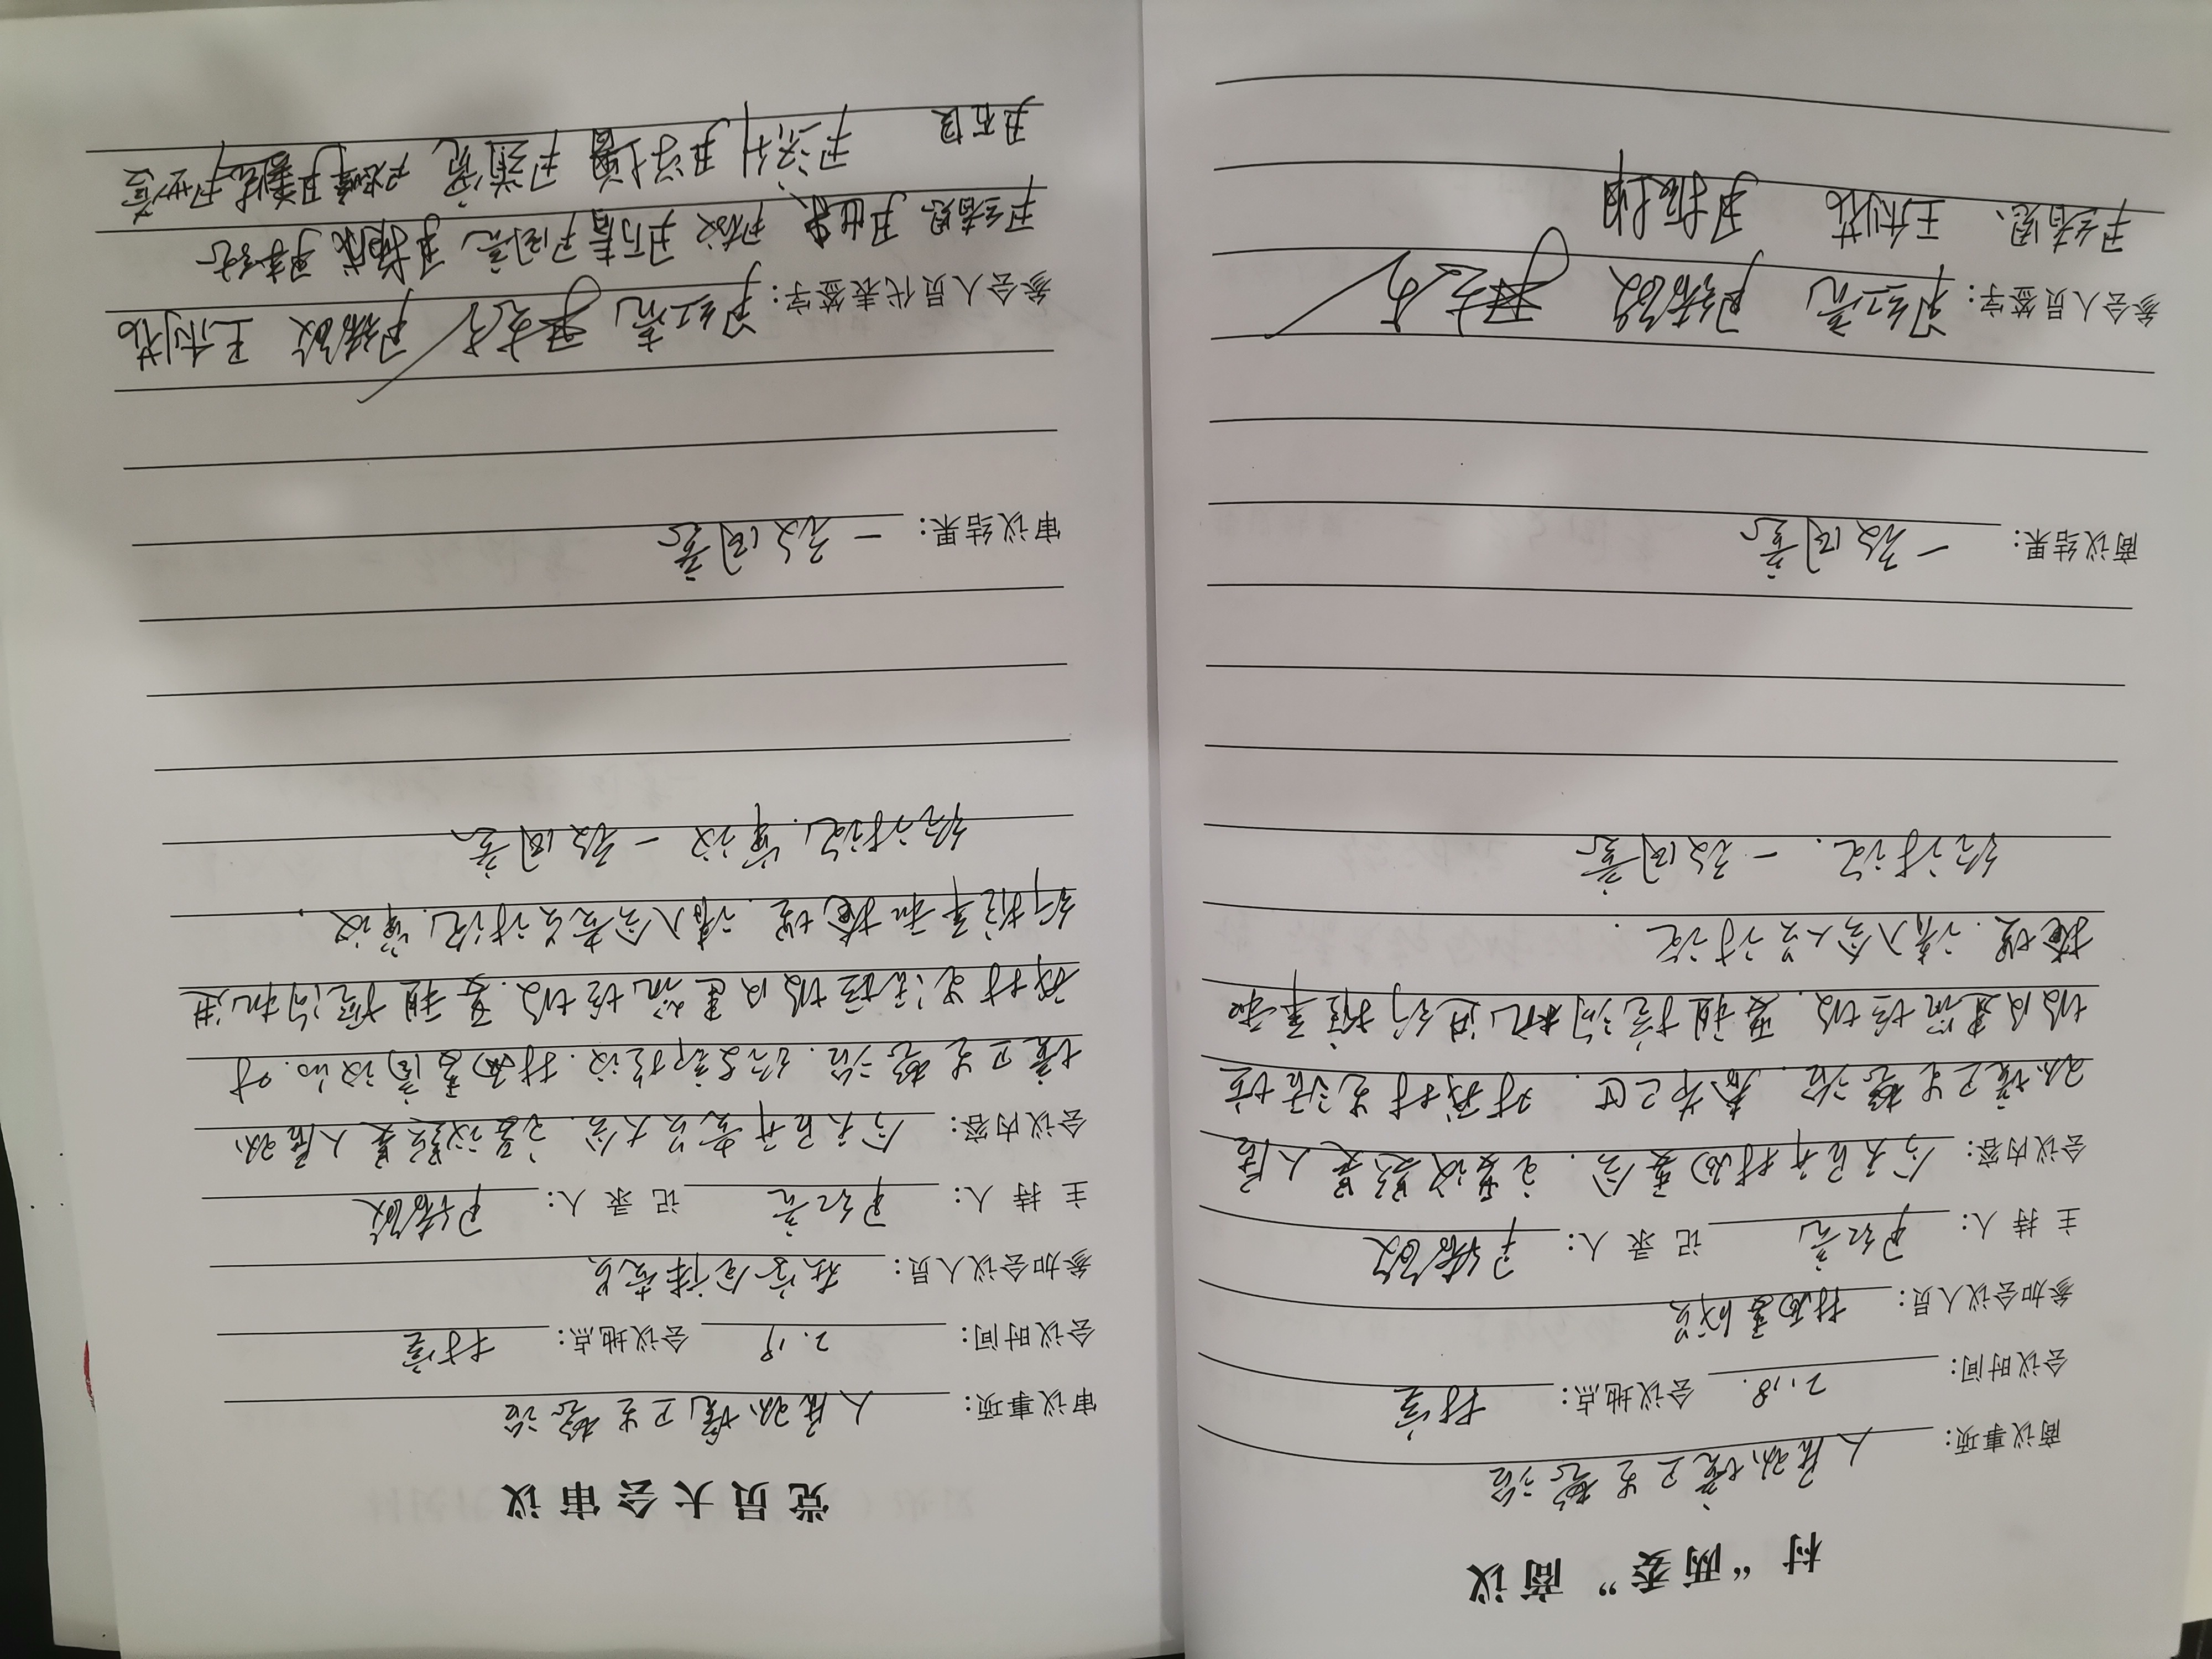 村“两委”商议
商议事项: 人居环境卫生整治
会议时间: 2.18. 会议地点: 村室
参加会议人员: 村两委成员
主 持 人: 尹红亮 记 录 人: 尹绪敏
会议内容: 今天召开村两委会.主要议题是人居
环境卫生整治.春节已过.对我村生活垃
圾及建筑垃圾.要租挖沟机进行推平和
掩埋.请入会人员讨论.
经讨论.一致同意
商议结果: 一致同意
参会人员签字: 尹红亮 尹绪敏
尹绪恩、 王利花 尹振坤
党员大会审议
审议事项: 人居环境卫生整治
会议时间: 2.19 会议地点: 村室
参加会议人员: 在家全体党员
主 持 人: 尹红亮 记 录 人: 尹绪敏
会议内容: 今天召开党员大会.主要议题是人居环
境卫生整治.经支部提议.村两委商议的.对
我村生活垃圾及建筑垃圾.要租挖沟机进
行推平和掩埋.请入会党员讨论.审议.
经讨论.审议一致同意
审议结果: 一致同意
参会人员代表签字: 尹红亮 尹绪敏 王利花
尹绪恩 尹万春 尹国亮
尹济升 尹学增 尹道宽 尹世营